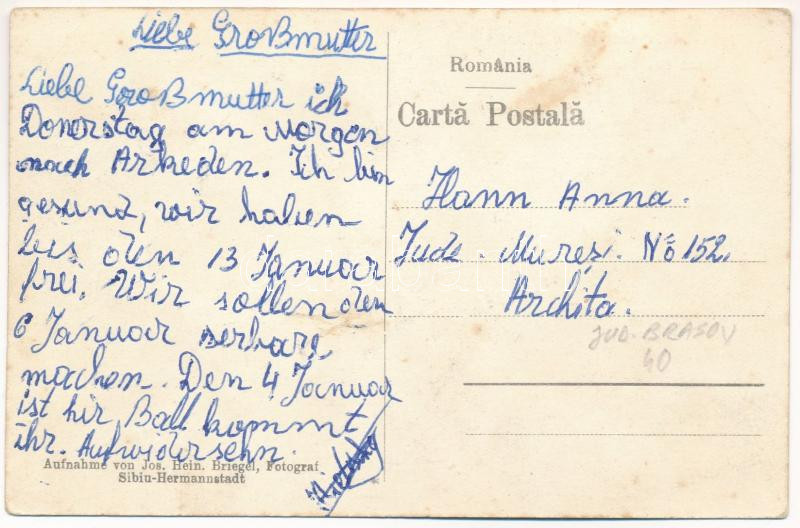 Liebe Großmutter
Liebe Großmutter ich
Donerstag am Morgen
nach Arkeden. Ich bin
gesund, wir haben
bis den 13 Januar
frei. Wir sollen den
6 Januar serbare
machen. Den 4 Januar
ist hir Ball kommt
ihr. Aufwidersehn.
Aufnahme von Jos. Hein. Briegel, Fotograf
Sibiu-Hermannstadt
România
Carta Postală
Hann Anna.
Jude. Mureși. No 152.
Archita.
JUD. BRASOV
40